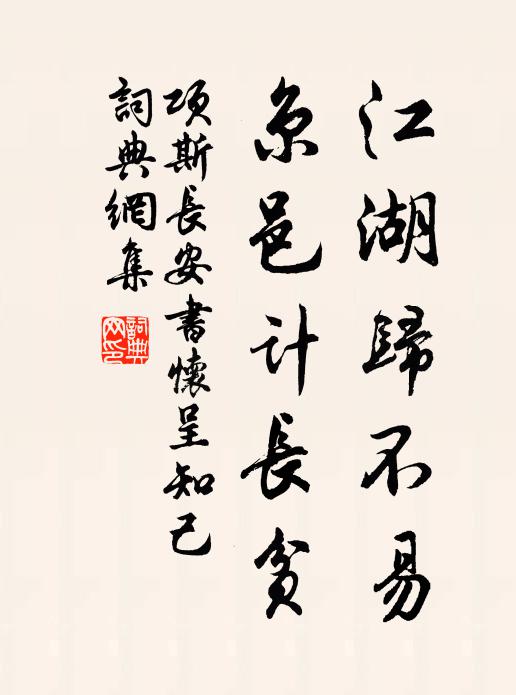 江湖歸不易
京邑计長貧
項斯長安書懷呈知己
詞典網集
詞典
网印